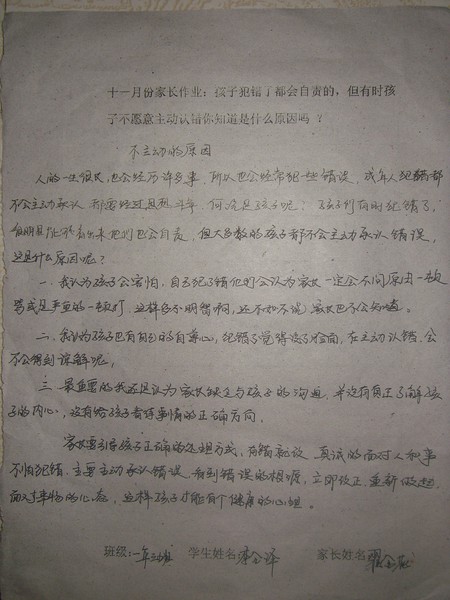 十一月份家长作业：孩子犯错了都会自责的，但有时孩
子不愿意主动认错你知道是什么原因吗？
不主动的原因
人的一生很长，也会经历许多事，所以也会经常犯些错误，成年人犯错都
不会主动承认，都要经过思想斗争，何况是孩子呢？孩子们有时犯错了，
他们也会自责，但大多数的孩子都不会主动承认错误，
这是什么原因呢？
一、我认为孩子会害怕，自己犯了错他们会认为家长一定会不问原因一顿
骂或是严重的一顿打，这样多不明智啊，还不如不说家长也不会知道。
二、我认为孩子也有自己的自尊心，犯错了觉得没了脸面，在主动认错，会
不会得到谅解呢，
三、最重要的我还是认为家长缺乏与孩子的沟通，并没有真正了解孩
子的内心，没有给孩子看待事情的正确方向。
家长要引导孩子正确的处理方式，有错就改，真诚的面对人和事
不怕犯错，主要主动承认错误，看到错误的根源，立即改正，重新做起，
面对事物的心态，这样孩子才能有个健康的心理。
班级：一年 学生姓名 家长姓名